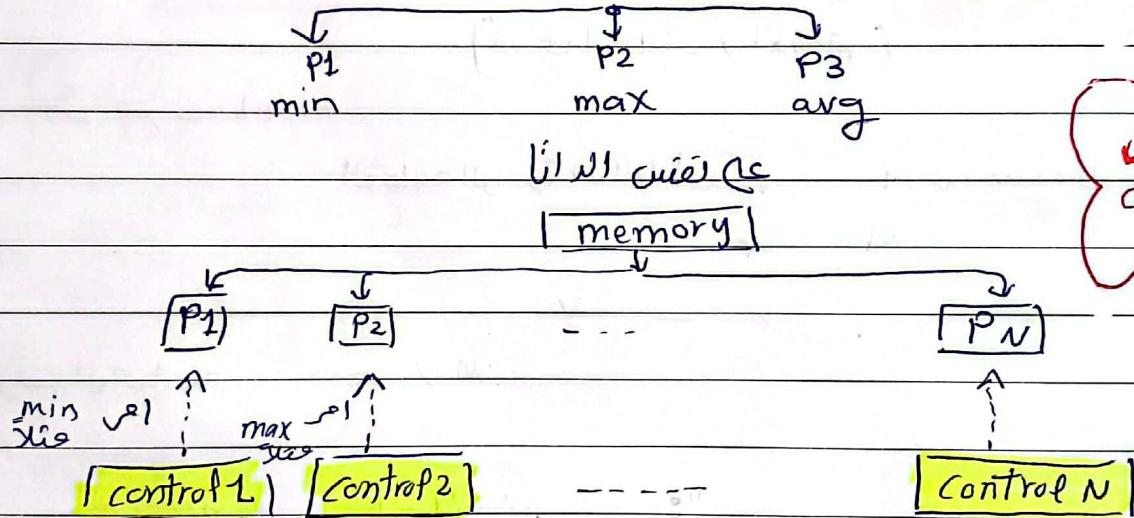 P1 P2 P3
min max avg
على نفس الداتا
memory
P1 P2 ---- PN
امر min مثلا امر max مثلا
control 1 control 2 ----- control N